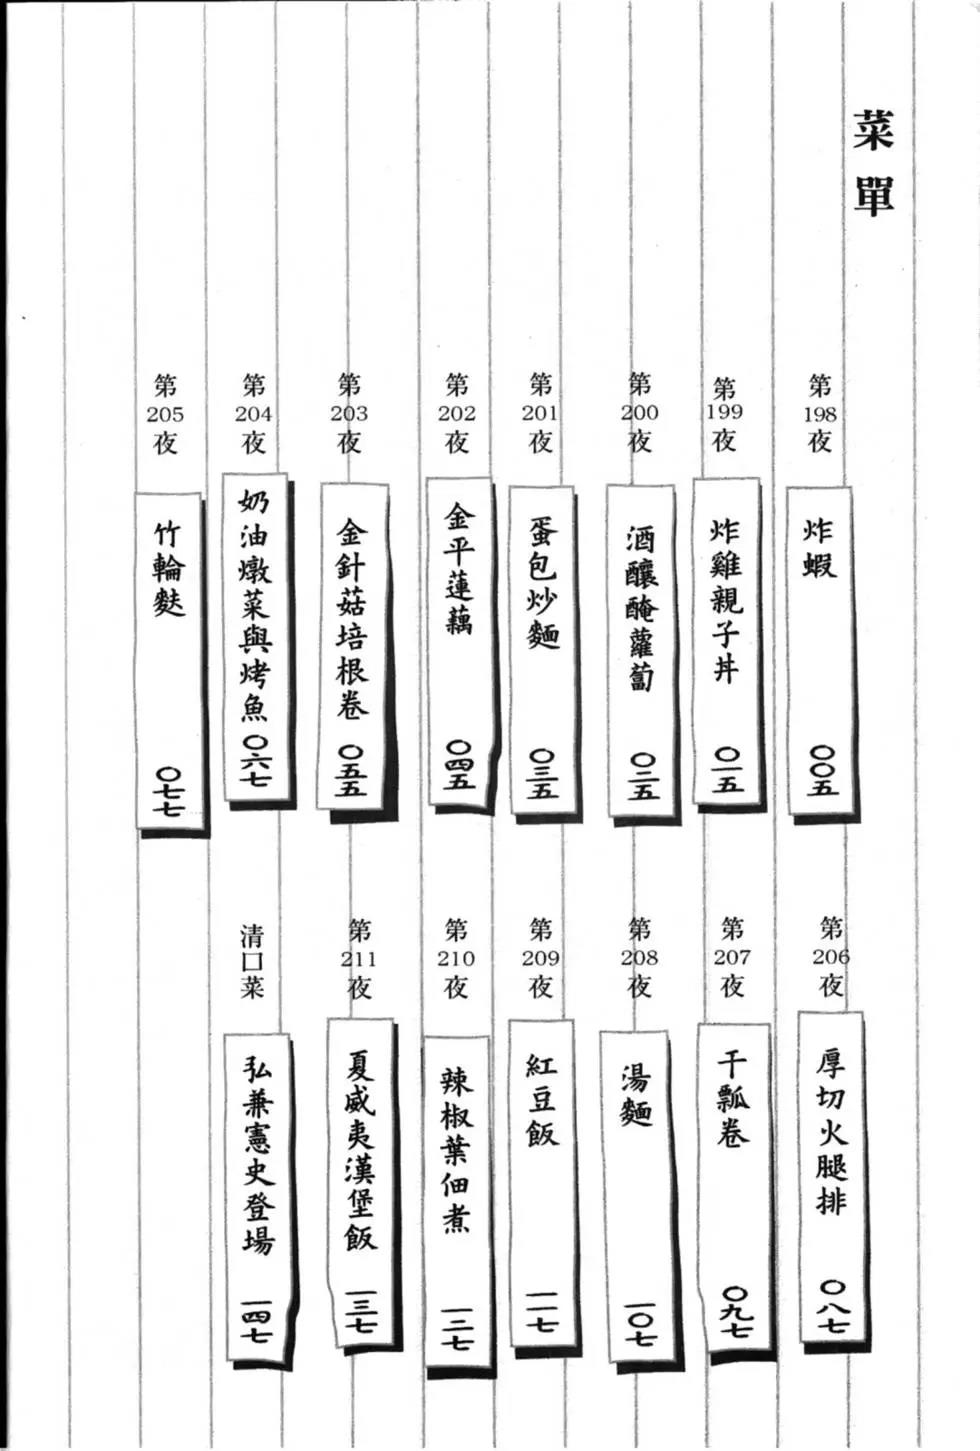 菜單
第198夜
炸蝦
〇〇五
第199夜
炸雞親子丼
〇一五
第200夜
酒釀醃蘿蔔
〇二五
第201夜
蛋包炒麵
〇三五
第202夜
金平蓮藕
〇四五
第203夜
金針菇培根卷
〇五五
第204夜
奶油燉菜與烤魚
〇六七
第205夜
竹輪麩
〇七七
第206夜
厚切火腿排
〇八七
第207夜
干瓢卷
〇九七
第208夜
湯麵
一〇七
第209夜
紅豆飯
一一七
第210夜
辣椒葉佃煮
一二七
第211夜
夏威夷漢堡飯
一三七
清口菜
弘兼憲史登場
一四七